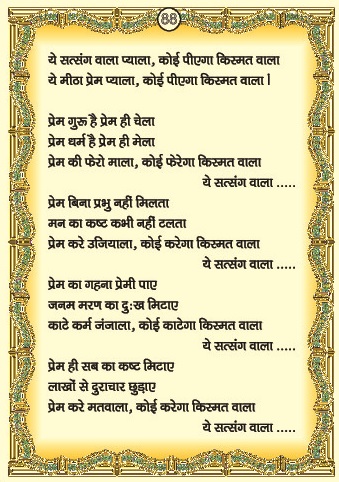 88
ये सत्संग वाला प्याला, कोई पीएगा किस्मत वाला
ये मीठा प्रेम प्याला, कोई पीएगा किस्मत वाला।
प्रेम गुरू है प्रेम ही चेला
प्रेम धर्म है प्रेम ही मेला
प्रेम की फेरो माला, कोई फेरेगा किस्मत वाला
ये सत्संग वाला .....
प्रेम बिना प्रभु नहीं मिलता
मन का कष्ट कभी नहीं टलता
प्रेम करे उजियाला, कोई करेगा किस्मत वाला
ये सत्संग वाला .....
प्रेम का गहना प्रेमी पाए
जनम मरण का दुःख मिटाए
काटे कर्म जंजाला, कोई काटेगा किस्मत वाला
ये सत्संग वाला .....
प्रेम ही सब का कष्ट मिटाए
लाखों से दुराचार छुड़ाए
प्रेम करे मतवाला, कोई करेगा किस्मत वाला
ये सत्संग वाला .....